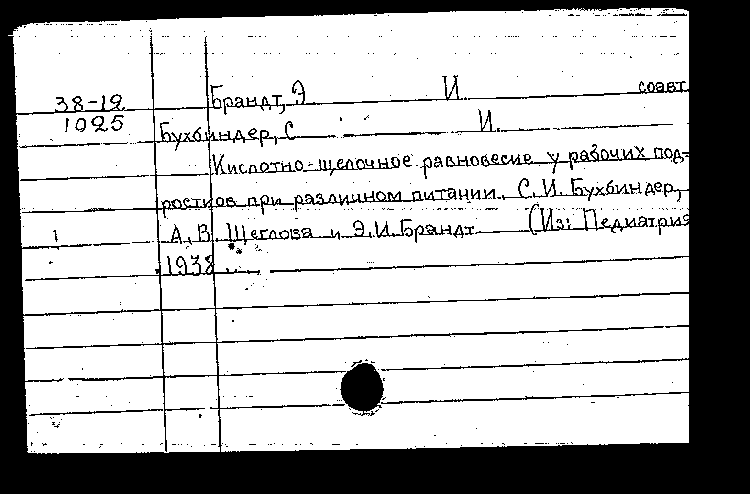 38-12 Брандт, Э И соавт.
1025 Бухбиндер, С И.
Кислотно-щелочное равновесие у рабочих под-
ростков при различном питании. С. И. Бухбиндер,
А. В. Щеглова и Э. И. Брандт (Из: Педиатрия
1938